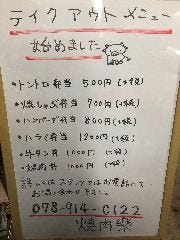 テイクアウトメニュー
始めました
・トントロ弁当 500円(+税)
・焼しゃぶ弁当 700円(+税)
・ハンバーグ弁当 800円(+税)
・ハラミ弁当 1200円(+税)
・牛タン丼 1000円(+税)
・焼肉丼 1000円(+税)
詳しくはスタッフ又はお電話にて
お問い合わせ下さい。
078-914-0122
焼肉楽